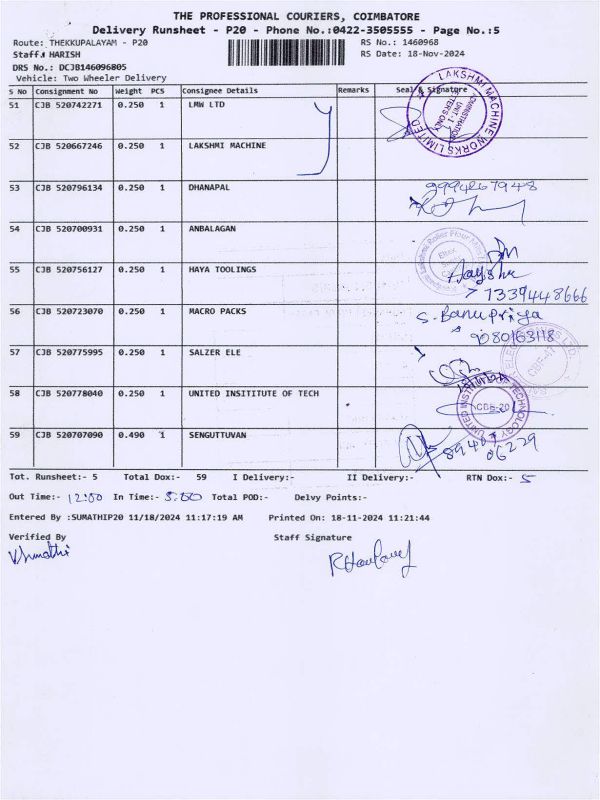 THE PROFESSIONAL COURIERS, COIMBATORE
Delivery Runsheet - P20 - Phone No.:0422-3505555 - Page No.:5
Route: THEKKUPALAYAM - P20 RS No.: 1460968
Staff: HARISH RS Date: 18-Nov-2024
DRS No.: DCJB146096805
Vehicle: Two Wheeler Delivery
S No Consignment No Weight PCS Consignee Details Remarks Seal & Signature
51 CJB 520742271 0.250 1 LMW LTD
LAKSHMI MACHINE WORKS LIMITED
ADMINISTRATION
UNIT-1
52 CJB 520667246 0.250 1 LAKSHMI MACHINE
53 CJB 520796134 0.250 1 DHANAPAL 9994267948
54 CJB 520700931 0.250 1 ANBALAGAN
Lakshmi Roller Flour
55 CJB 520756127 0.250 1 HAYA TOOLINGS
7339448666
56 CJB 520723070 0.250 1 MACRO PACKS S. Banu Priya
57 CJB 520775995 0.250 1 SALZER ELE
58 CJB 520778040 0.250 1 UNITED INSITITUTE OF TECH
UNITED INSTITUTE OF TECHNOLOGY
CBE-20
59 CJB 520707090 0.490 1 SENGUTTUVAN
Tot. Runsheet:- 5 Total Dox:- 59 I Delivery:- II Delivery:- RTN Dox:- 5
Out Time:- 12:00 In Time:- 5:00 Total POD:- Delvy Points:-
Entered By :SUMATHIP20 11/18/2024 11:17:19 AM Printed On: 18-11-2024 11:21:44
Verified By Staff Signature